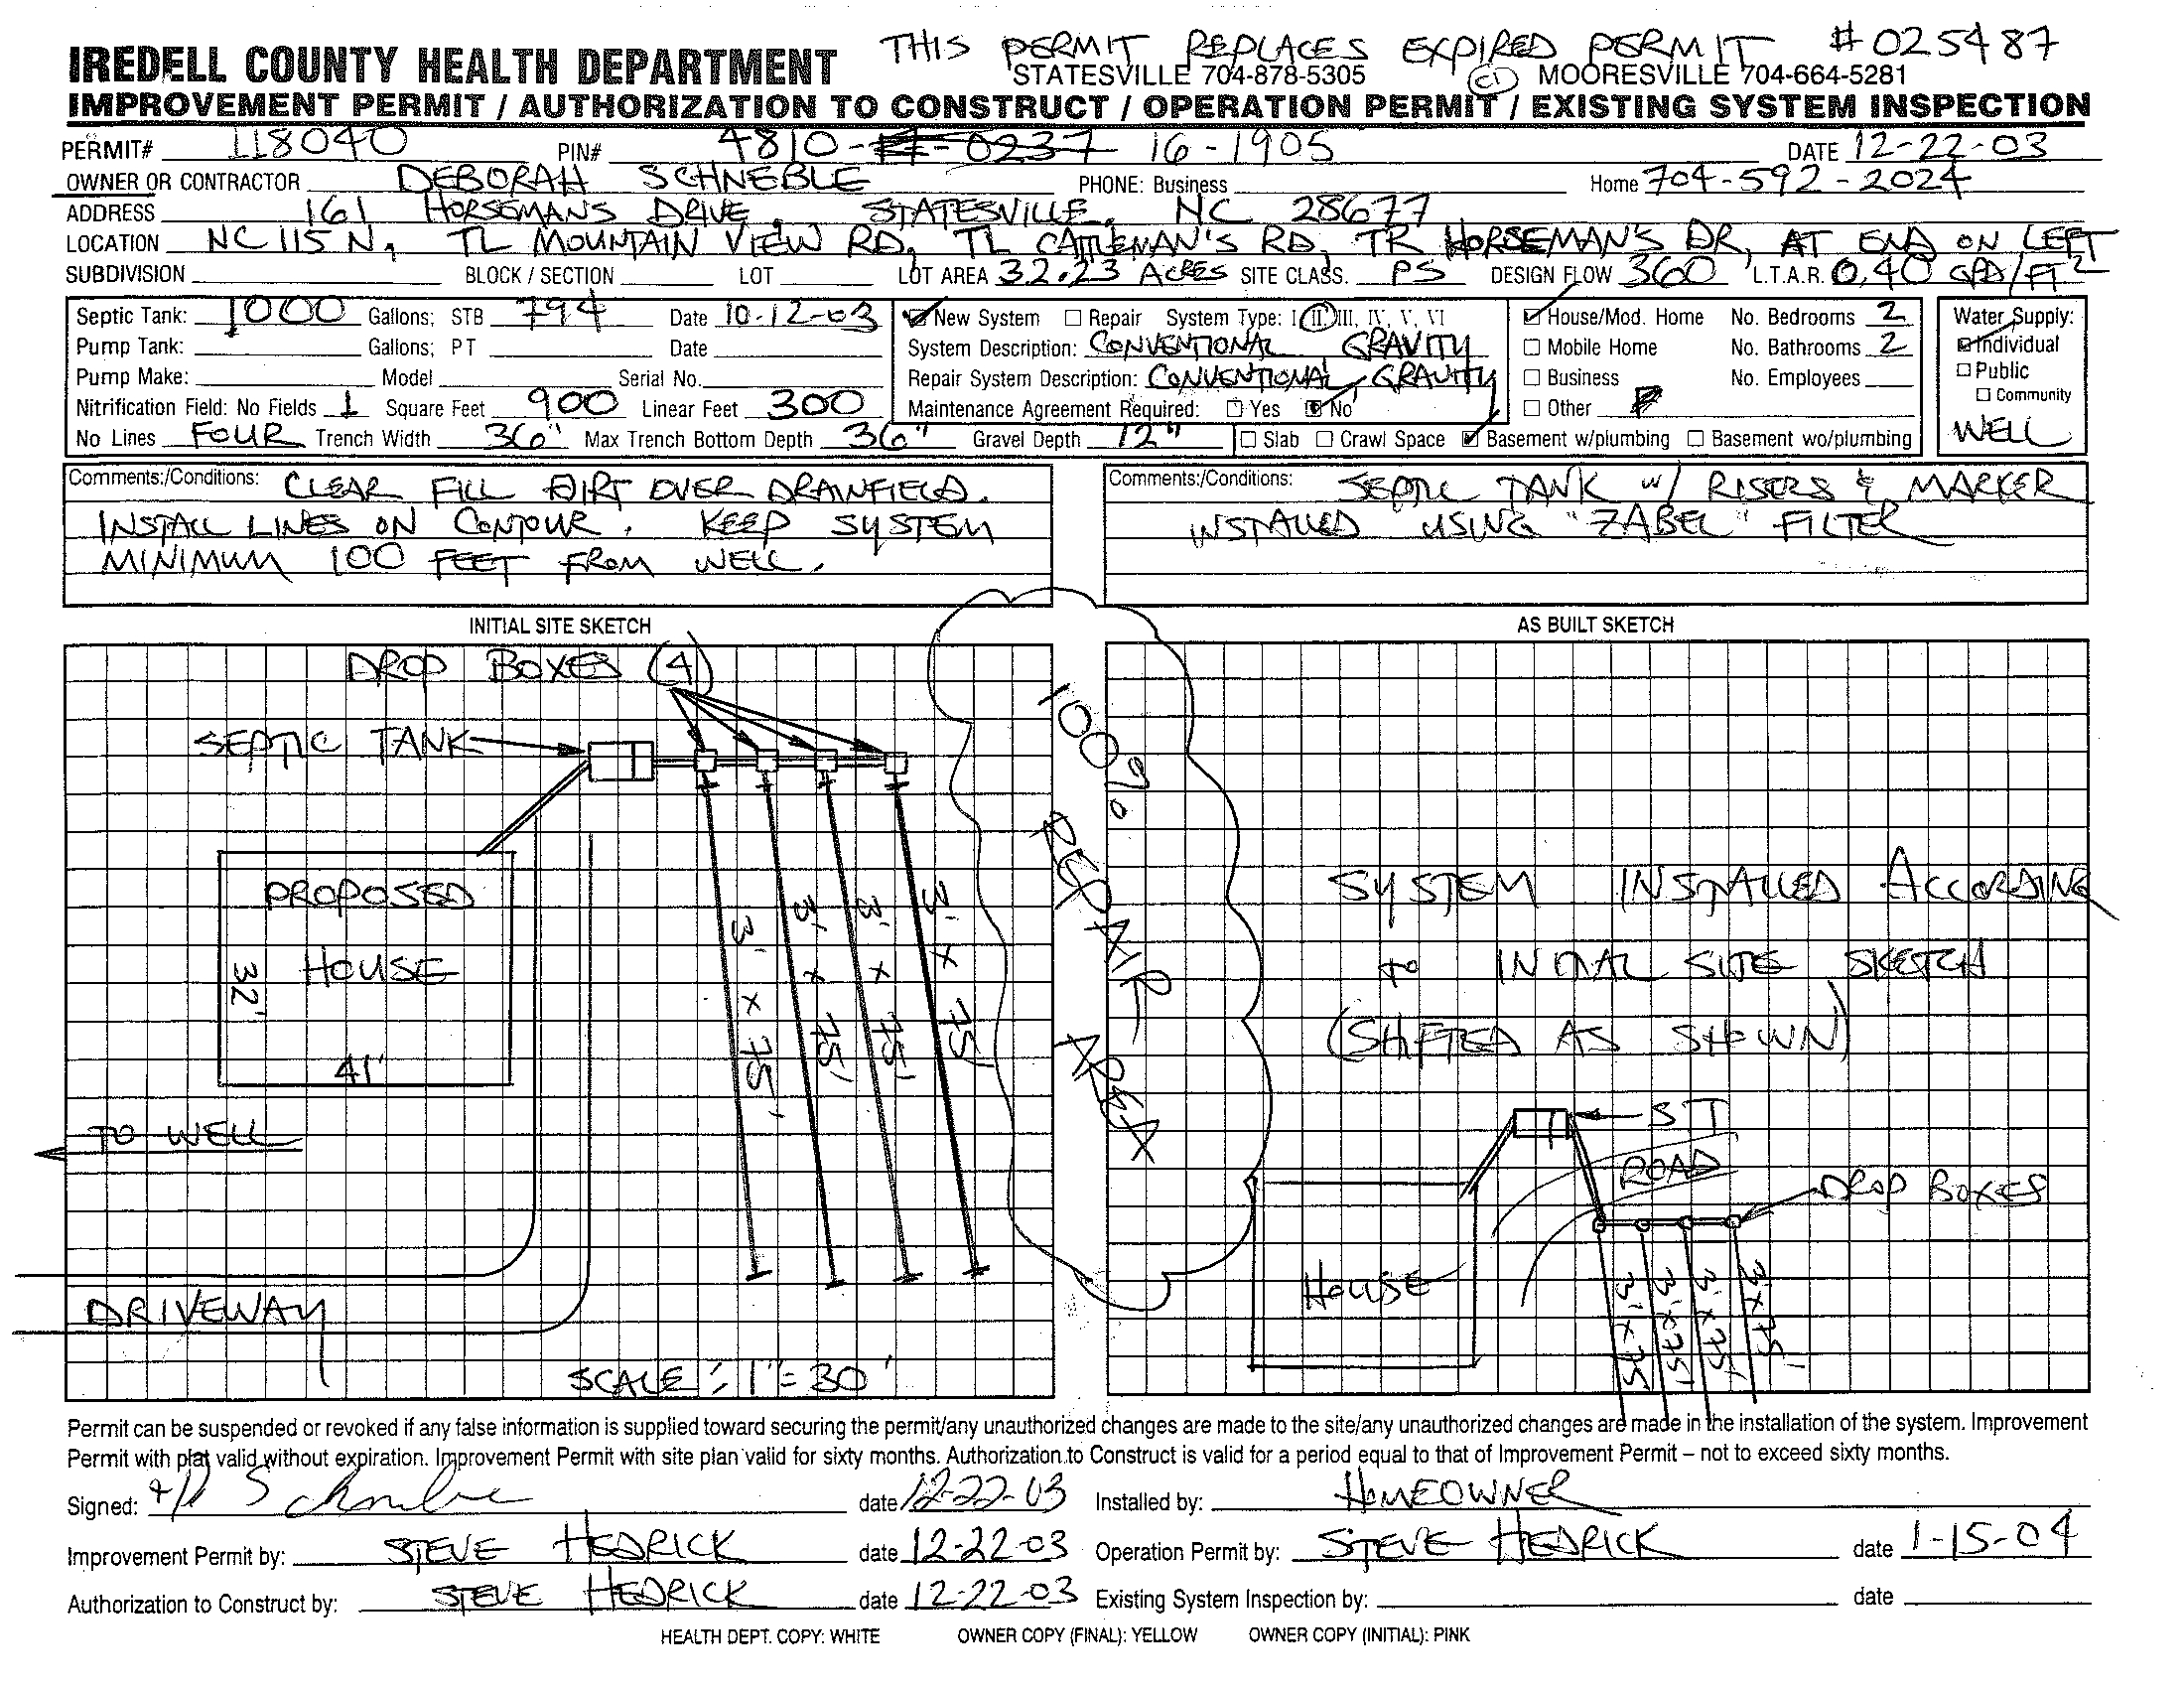 THIS PERMIT REPLACES EXPIRED PERMIT #025487
IREDELL COUNTY HEALTH DEPARTMENT STATESVILLE 704-878-5305 MOORESVILLE 704-664-5281
IMPROVEMENT PERMIT / AUTHORIZATION TO CONSTRUCT / OPERATION PERMIT / EXISTING SYSTEM INSPECTION
PERMIT# 118040 PIN# 4810- 0237 16-1905 DATE 12-22-03
OWNER OR CONTRACTOR DEBORAH SCHNEBLE PHONE: Business Home 704-592-2024
ADDRESS 161 HORSEMANS DRIVE, STATESVILLE, NC 28677
LOCATION NC 115 N, TL MOUNTAIN VIEW RD, TL CATTLEMAN'S RD, TR HORSEMAN'S DR, AT END ON LEFT
SUBDIVISION BLOCK / SECTION LOT LOT AREA 32.23 ACRES SITE CLASS. PS DESIGN FLOW 360 L.T.A.R. 0.40 GPD/FT2
Septic Tank: 1000 Gallons; STB 794 Date 10-12-03 New System Repair System Type: I, II, III, IV, V, VI House/Mod. Home No. Bedrooms 2 Water Supply:
Pump Tank: Gallons; PT Date System Description: CONVENTIONAL GRAVITY Mobile Home No. Bathrooms 2 Individual
Pump Make: Model Serial No. Repair System Description: CONVENTIONAL GRAVITY Business No. Employees Public
Nitrification Field: No Fields 1 Square Feet 900 Linear Feet 300 Maintenance Agreement Required: Yes No Other Community
No Lines FOUR Trench Width 36" Max Trench Bottom Depth 36" Gravel Depth 12" Slab Crawl Space Basement w/plumbing Basement wo/plumbing WELL
Comments:/Conditions: CLEAR FILL DIRT OVER DRAINFIELD.
INSTALL LINES ON CONTOUR. KEEP SYSTEM
MINIMUM 100 FEET FROM WELL.
Comments:/Conditions: SEPTIC TANK w/ RISERS & MARKER
INSTALLED USING "ZABEL" FILTER
INITIAL SITE SKETCH
DROP BOXES (4)
SEPTIC TANK
PROPOSED
HOUSE
32'
41'
3' x 75'
3' x 75'
3' x 75'
3' x 75'
TO WELL
DRIVEWAY
SCALE: 1" = 30'
100% REPAIR AREA
AS BUILT SKETCH
SYSTEM INSTALLED ACCORDING
to INITIAL SITE SKETCH
(SHIFTED AS SHOWN)
ST
ROAD
DROP BOXES
HOUSE
3' x 75'
3' x 75'
3' x 75'
3' x 75'
Permit can be suspended or revoked if any false information is supplied toward securing the permit/any unauthorized changes are made to the site/any unauthorized changes are made in the installation of the system. Improvement
Permit with plat valid without expiration. Improvement Permit with site plan valid for sixty months. Authorization to Construct is valid for a period equal to that of Improvement Permit – not to exceed sixty months.
Signed: date 12-22-03 Installed by: HOMEOWNER
Improvement Permit by: STEVE HEDRICK date 12-22-03 Operation Permit by: STEVE HEDRICK date 1-15-04
Authorization to Construct by: STEVE HEDRICK date 12-22-03 Existing System Inspection by: date
HEALTH DEPT. COPY: WHITE OWNER COPY (FINAL): YELLOW OWNER COPY (INITIAL): PINK